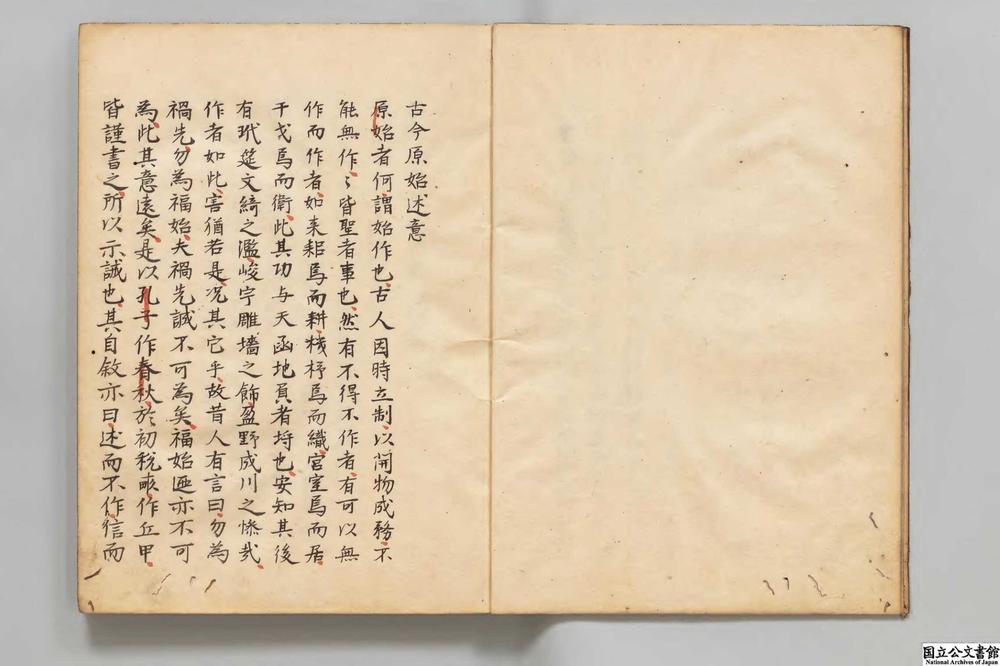 古今原始述意
原始者何謂始作也古人因時立制以開物成務不
能無作々皆聖者事也然有不得不作者有可以無
作而作者如耒耜焉而耕機杼焉而織宮室焉而居
干戈焉而衛此其功与天函地負者埒也安知其後
有玳筵文綺之濫峻宇雕墻之飾盈野成川之慘哉
作者如此害猶若是况其它乎故昔人有言曰勿為
禍先勿為福始夫禍先誠不可為矣福始亦不可
為此其意遠矣是以孔子作春秋於初稅畝作丘甲
皆謹書之所以示誡也其自敘亦曰述而不作信而
国立公文書館
National Archives of Japan